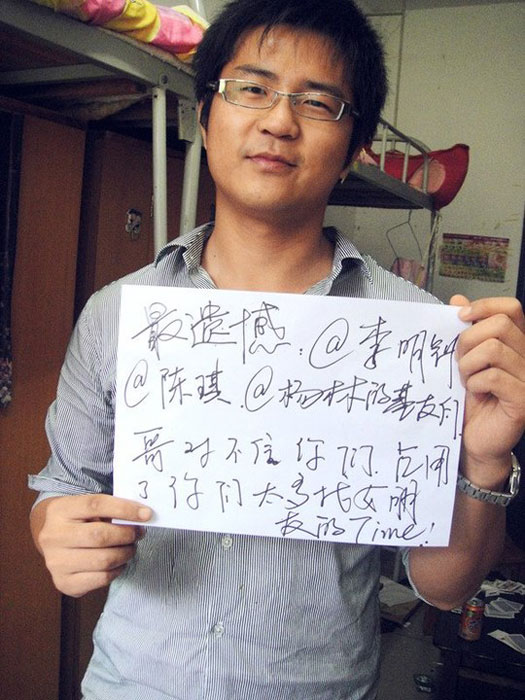 最遗憾:@李明钊
@陈琪.@杨林林的基友们.
哥对不住你们.占用
了你们太多找女朋
友的Time!